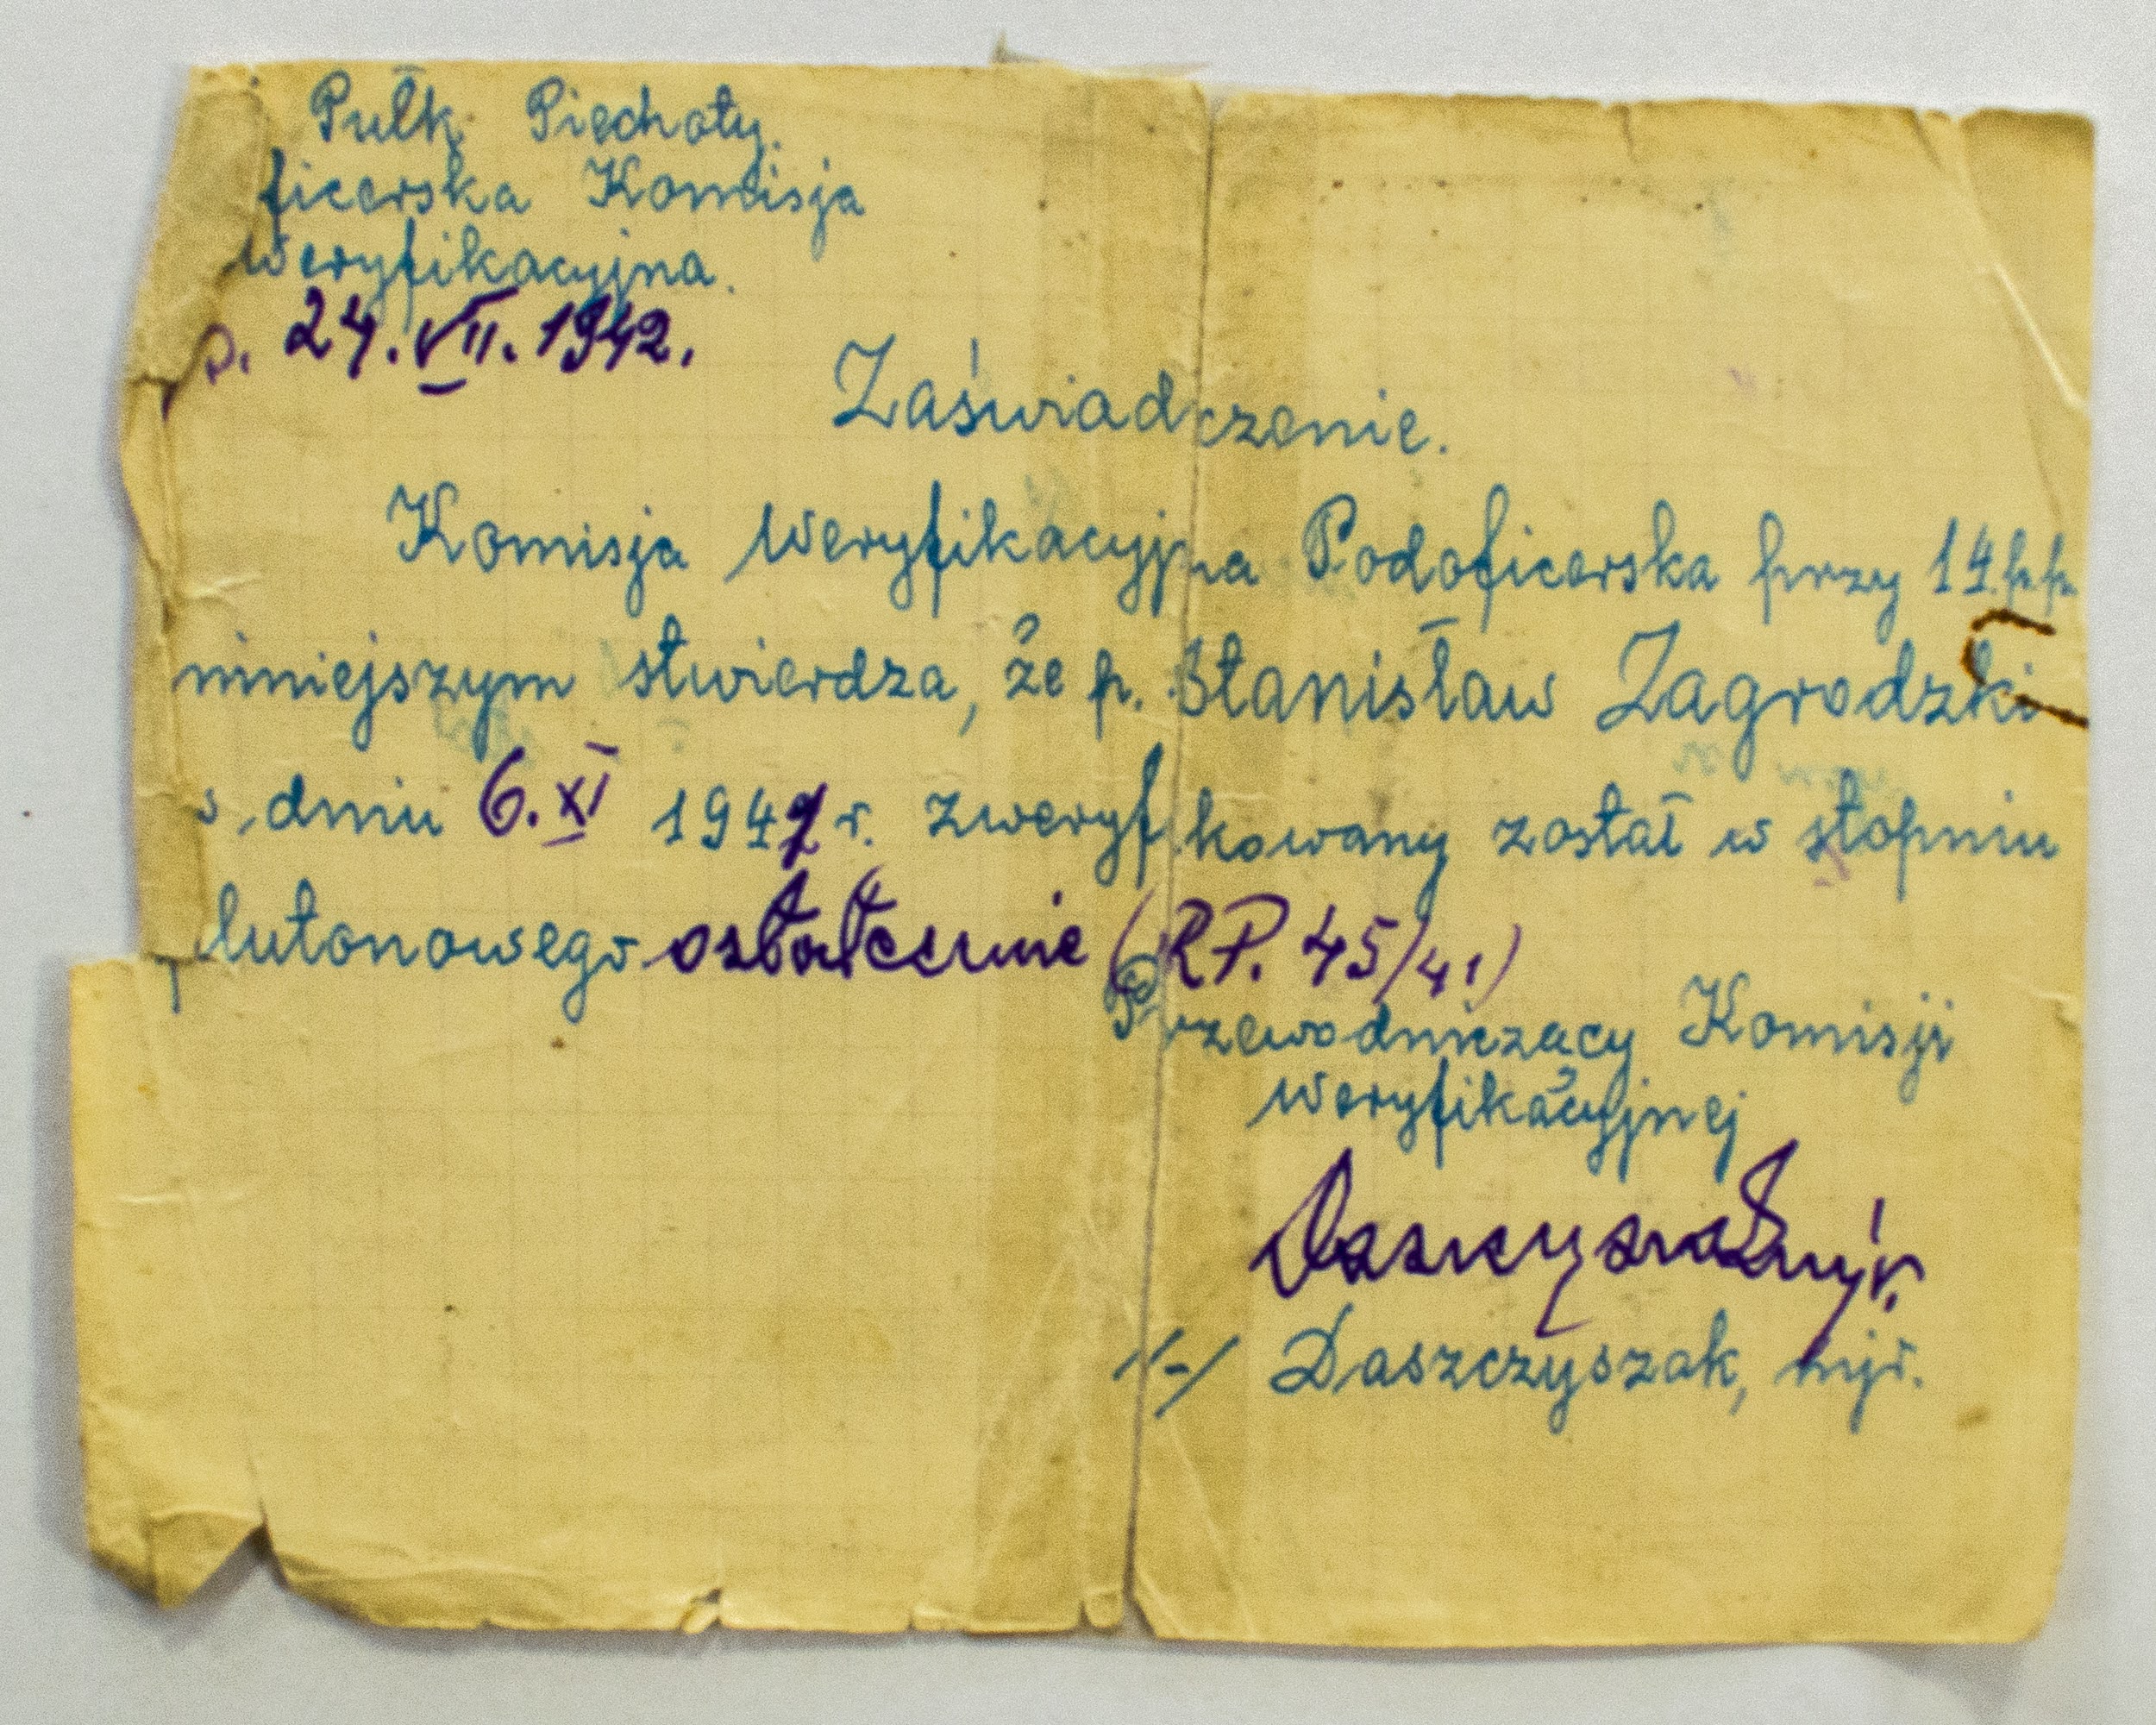 Pułk Piechoty.
ficerska Komisja
Weryfikacyjna.
p. 24.VII.1942.
Zaświadczenie.
Komisja Weryfikacyjna Podoficerska przy 14.p.p.
niniejszym stwierdza, że p. Stanisław Zagrodzki
dniu 6.XI 1942 r. zweryfikowany został w stopniu
plutonowego ostatecznie (RP. 45/41)
Przewodniczący Komisji
Weryfikacyjnej
Daszczyszak mjr.
/-/ Daszczyszak, mjr.